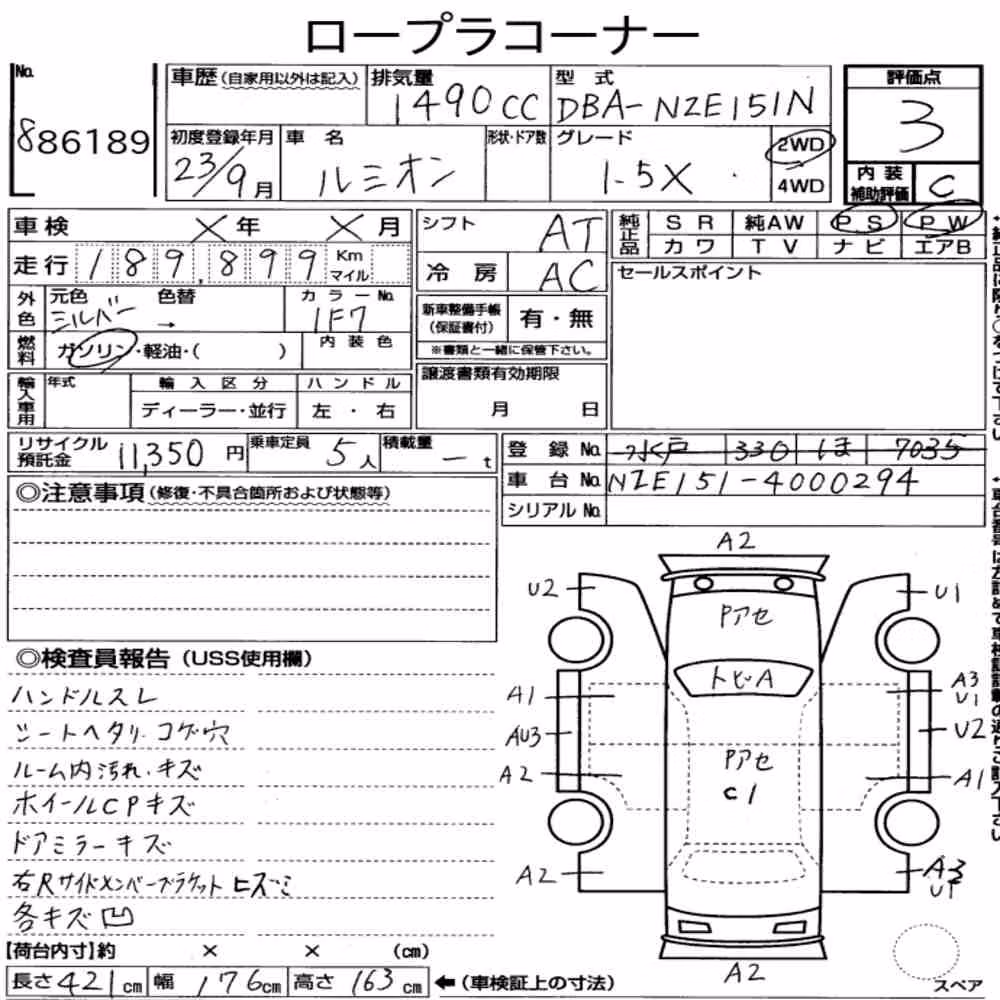 ロープラコーナー
No. 886189
車歴(自家用以外は記入) 排気量 1490CC 型式 DBA-NZE151N 評価点 3
初度登録年月 23/9月 車名 ルミオン 形状・ドア数 グレード 1.5X 2WD 4WD 内装補助評価 C
車検 ×年 ×月 シフト AT 純正品 SR 純AW PS PW
走行 189,899 Km マイル 冷房 AC カワ TV ナビ エアB
外色 元色 シルバー 色替 → カラーNo. 1F7 新車整備手帳(保証書付) 有・無 セールスポイント
燃料 ガソリン・軽油・( ) 内装色 ※書類と一緒に保管下さい。
輸入車用 年式 輸入区分 ハンドル 譲渡書類有効期限
ディーラー・並行 左・右 月 日
リサイクル預託金 11,350円 乗車定員 5人 積載量 -t 登録No. 水戸 330 ほ 7035
車台No. NZE151-4000294
シリアルNo.
◎注意事項(修復・不具合箇所および状態等)
◎検査員報告(USS使用欄)
ハンドルスレ
シートヘタリ.コゲ穴
ルーム内汚れ.キズ
ホイールCPキズ
ドアミラーキズ
右Rサイドメンバーブラケット ヒズミ
各キズ凹
【荷台内寸】約 × × (cm)
長さ421cm 幅176cm 高さ163cm ←(車検証上の寸法)
A2
U2 U1
Pアセ
トビA
A1 A3 U1
AU3 U2
Pアセ
A2 C1 A1
A2 A3 U1
A2
スペア